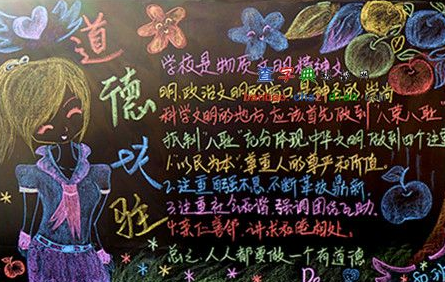 道
德
永
驻
学校是物质文明精神文
明,政治文明的窗口,是神圣的,崇尚
查字典
科学文明的地方,应该首先做到"八荣八耻
抵制"八耻"充分体现中华文明,做到四个注
1."以民为本"尊重人的尊严和价值。
2.注重自强不息,不断革故鼎新,
3.注重社会和谐,强调团结互助,
4.亲仁善邻,讲求和睦相处,
总之,人人都要做一个有道德